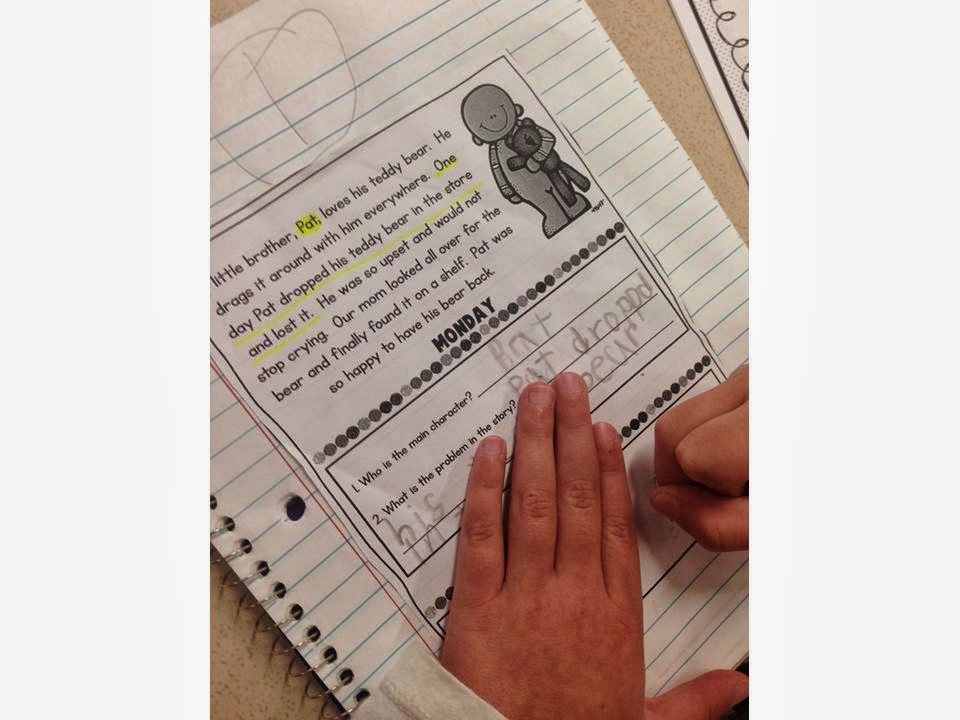 little brother, Pat, loves his teddy bear. He
drags it around with him everywhere. One
day Pat dropped his teddy bear in the store
and lost it. He was so upset and would not
stop crying. Our mom looked all over for the
bear and finally found it on a shelf. Pat was
so happy to have his bear back.
MONDAY
1. Who is the main character? Pat
2. What is the problem in the story? Pat droppd
his bear